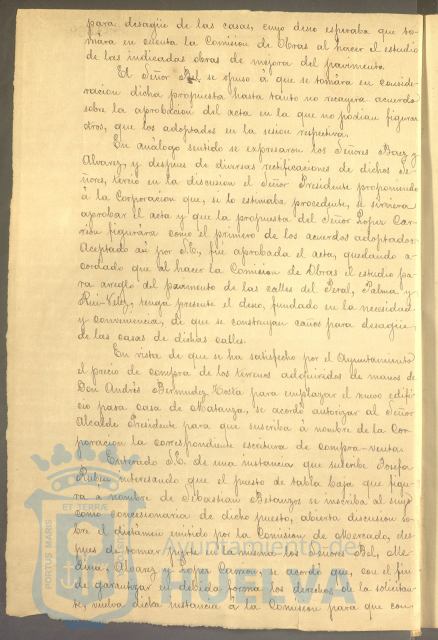 para desagüe de las casas, cuyo deseo esperaba que to-
mára en cuenta la Comision de Obras al hacer el estudio
de las indicadas obras de mejora del pavimento.
El Señor Bel, se opuso á que se tomára en conside-
racion dicha propuesta hasta tanto no recayera acuerdo
sobre la aprobacion del acta en la que no podian figurar
otros, que los adoptados en la sesion respectiva.
En análogo sentido se expresaron los Señores Baez y
Alvarez, y despues de diversas rectificaciones de dichos Se-
ñores, terció en la discusion el Señor Presidente proponiendo
á la Corporacion que, si lo estimaba procedente, se sirviera
aprobar el acta y que la propuesta del Señor Lopez Car-
rion figurára como el primero de los acuerdos adoptados.
Aceptado así por S.E., fué aprobada el acta, quedando a-
cordado que al hacer la Comision de Obras el estudio pa-
ra arreglo del pavimento de las calles del Peral, Palma y
Rui-Velez, tenga presente el deseo, fundado en la necesidad
y conveniencia, de que se construyan caños para desagüe
de las casas de dichas calles.
En vista de que se ha satisfecho por el Ayuntamiento
el precio de compra de los terrenos adquiridos de manos de
Don Andrés Bermudez Costa para emplazar el nuevo edifi-
cio para casa de Matanza, se acordó autorizar al Señor
Alcalde Presidente para que suscriba á nombre de la Cor-
poracion la correspondiente escritura de compra-venta.
Enterado S.E. de una instancia que suscribe Josefa
Rubio interesando que el puesto de tabla baja que figu-
ra á nombre de Sebastian Betanzos se inscriba al suyo
como concesionaria de dicho puesto, abierta discusion so-
bre el dictámen emitido por la Comision de Mercado, des-
pues de tomar parte en la misma los Señores Bel, Me-
dina, Alvarez y Lopez Carrion, se acordó que, con el fin
de garantizar en debida forma los derechos de la solicitan-
te, vuelva dicha instancia á la Comision para que con-
PORTUS MARIS
ET TERRÆ
CUSTODIA
Ayuntamiento de
HUELVA